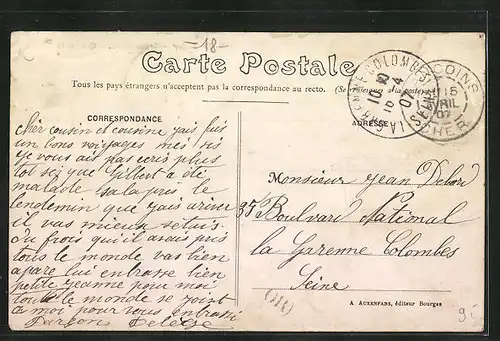 18-
Carte Postale
Tous les pays étrangers n'acceptent pas la correspondance au recto.
CORRESPONDANCE
ADRESSE
LA GARENNE-COLOMBES
SEINE
10 4 07
COINS
15
AVRIL
07
CHER
cousin et cousine jais fais
un bons voyages mes sis
je vous ais pas ecris plus
tot sez que Gilbert a été
malable sala près le
lendemin que jais ariver
il vas mieux setais
du frois qu'il avais pris
tous le monde vas bien
apare lui enbrasse bien
petite jeanne pour moi
tous le monde se joint
a moi pour vous enbrasse
Monsieur Jean
35 Boulvard National
la Garenne Colombes
Seine
A. AUXENFANS, éditeur Bourges